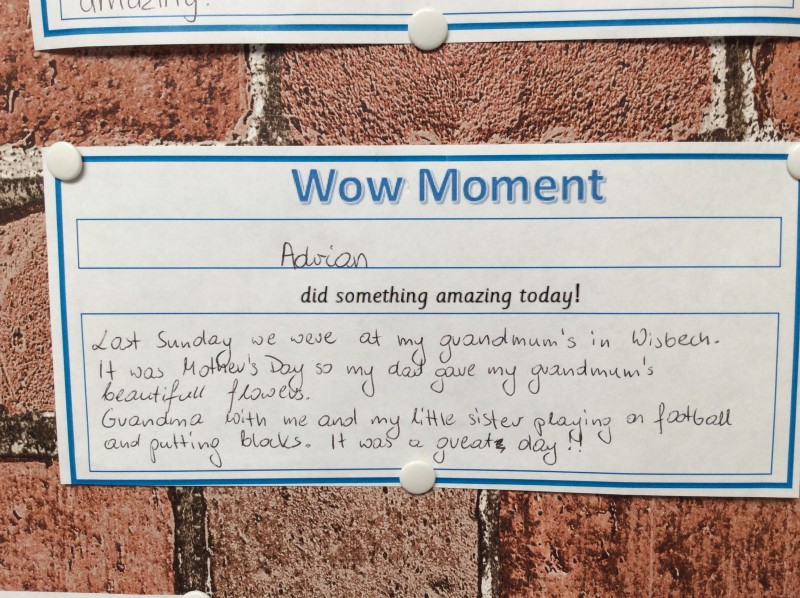 amazing!
Wow Moment
Adrian
did something amazing today!
Last Sunday we were at my grandmum's in Wisbech.
It was Mother's Day so my dad gave my grandmum's
beautifull flowers.
Grandma with me and my little sister playing on football
and putting blocks. It was a great day!!